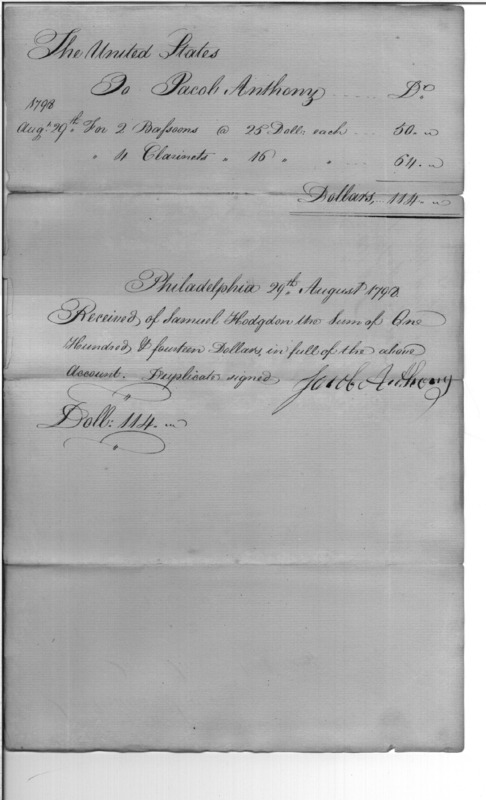 The United States
To Jacob Anthony Dr
1798
Augt 29th For 2 Bassoons @ 25 Dolls each 50.
" 4 Clarinets " 16 " " 64.
Dollars, 114.
Philadelphia 29th August 1798
Received of Samuel Hodgdon the Sum of One
Hundred & fourteen Dollars, in full of the above
Account. Duplicate signed Jacob Anthony
Doll: 114.